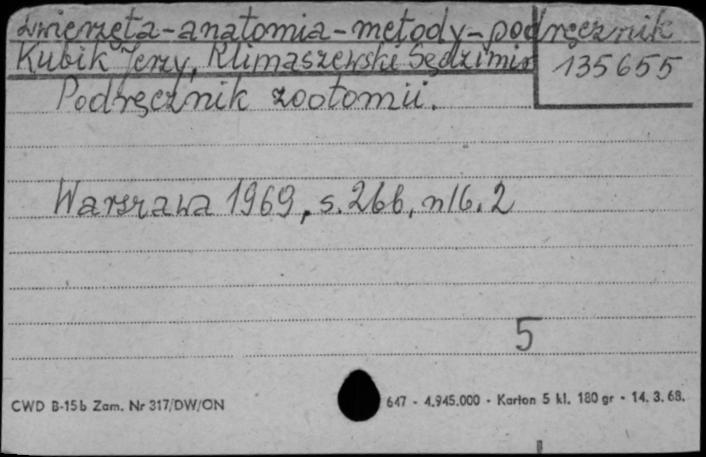 zwierzęta-anatomia-metody-podręcznik
Kubik Jerzy, Klimaszewski Sędzimir
135655
Podręcznik zootomii.
Warszawa 1969, s. 266, nlb. 2
5
CWD B-15b Zam. Nr 317/DW/ON
647 - 4.945.000 - Karton 5 kl. 180 gr - 14. 3. 68.